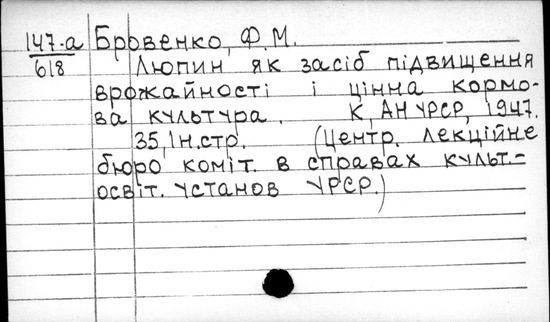 147-а Бровенко, Ф.М.
618 Люпин як засіб підвищення
врожайності і цінна кормо-
ва культура. К, АН УРСР, 1947.
35, 1н.стр. (Центр. лекційне
бюро коміт. в справах культ.-
освіт. установ УРСР.)